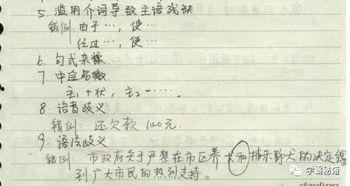 5. 滥用介词导致主语残缺
错例：由于…，使…
经过…，使…
6. 句式杂糅
7. 中途易辙
主₁+状，主₂……
8. 语音歧义
错例：还欠款100元.
9. 语法歧义
错例：市政府关于严禁在市区养犬和捕杀野犬的决定得
到广大市民的热烈支持。
学霸秘籍